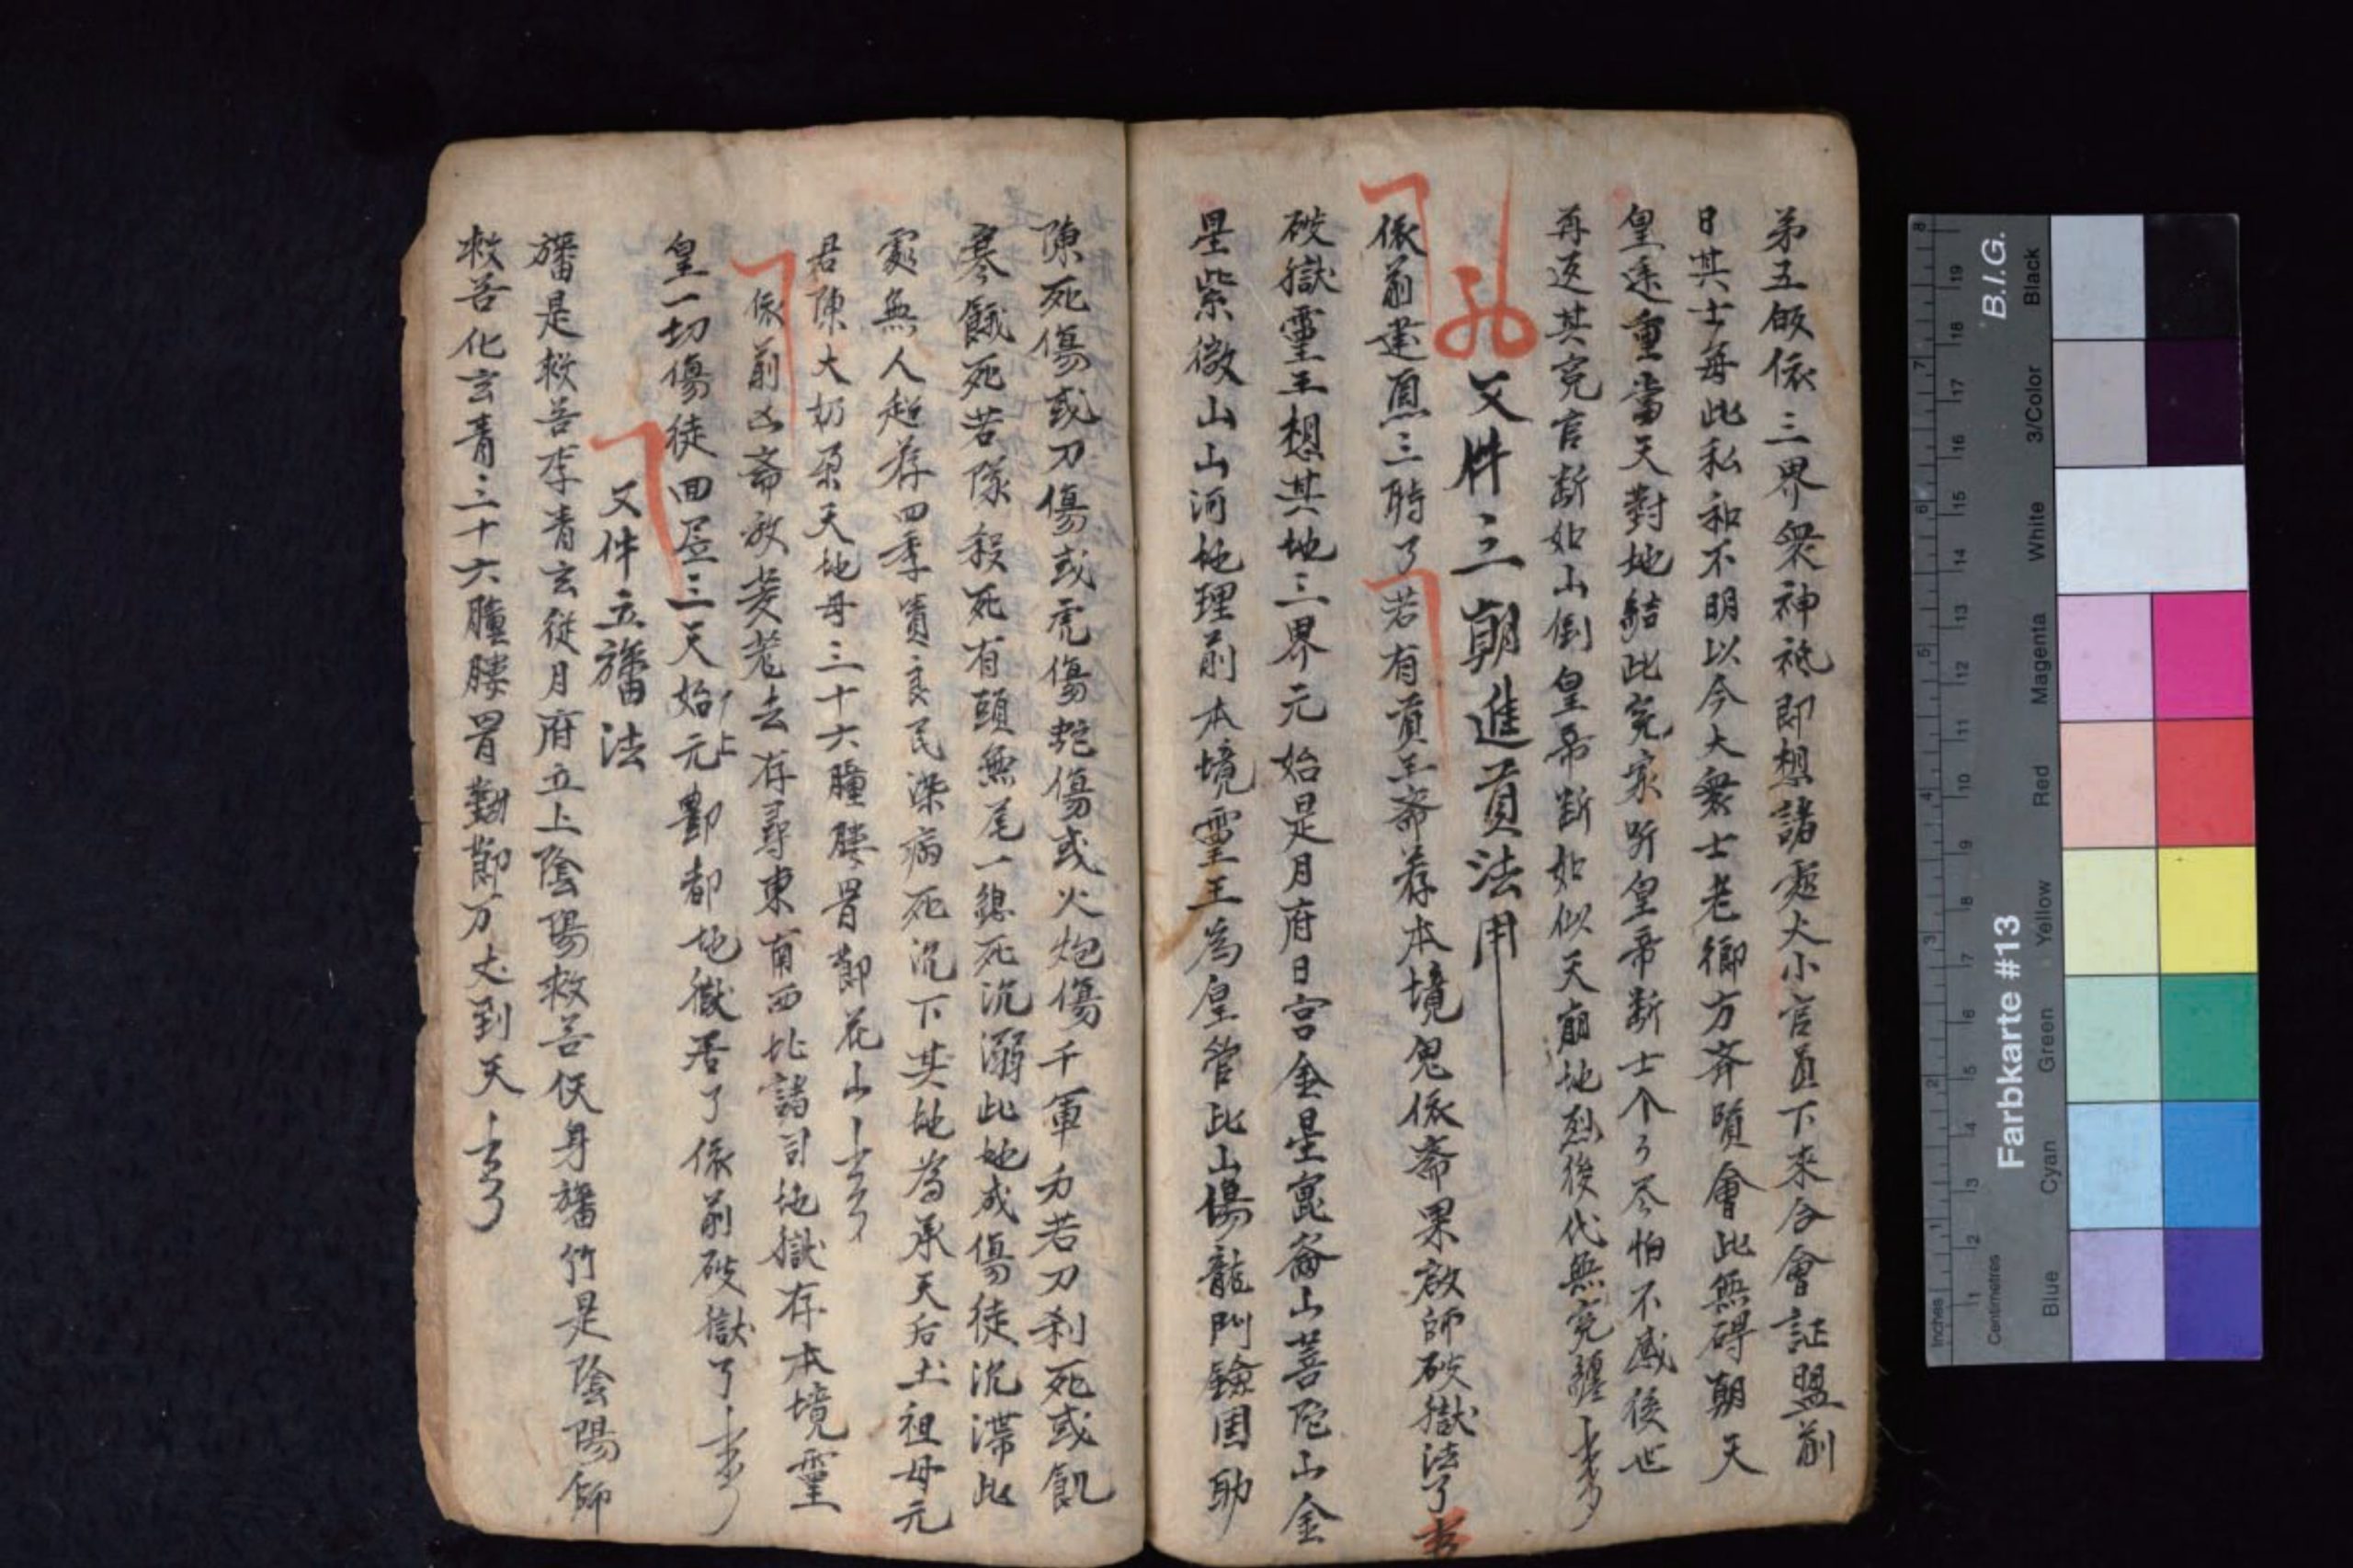 弟五皈依三界衆神祇即想諸處大小官員下来合會証盟前
日其士每此私和不明以今大衆士老鄉方齊質會此無碍朝天
皇送重當天對地結此寃家听皇帝断士个々尽怕不感後世
再返其寃言断如山倒皇帝断如似天崩地烈後代無寃纏
又件三朝進貢法用
依前建直三時了若有貢王斎荐本境鬼依斎果啟師破獄法了
破獄靈王想其地三界元始是月府日宫金星崑崙山菩陀山金
星紫微山山河地理前本境靈王為皇管此山傷龍門鐐国助
陳死傷或刀傷或虎傷蛇傷或火炮傷千軍力若刀刹死或飢
寒餓死苦隊殺死有頭無尾一総死沉溺此地成傷徒沉滯此
處無人超荐四季責良民染病死沉下其地為承天后土祖母元
君陳大奶閭天地母三十六膧膢胃節花山
依前凶斎救荖去存尋東南西北諸司地獄存本境靈
皇一切傷徒回层三天始元上酆都地獄居了依前破獄了
又件立旛法
旛是救苦李青玄從月府立上陰陽救苦伏身旛竹是陰陽師
救苦化玄青三十六膧膢胃斅節万丈到天
inches
Centimetres
Farbkarte #13
B.I.G.
Blue
Cyan
Green
Yellow
Red
Magenta
White
3/Color
Black